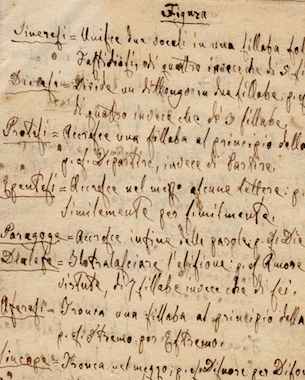 Figura
Sinerefi = Unifce due vocali in una fillaba
di quatro invece che di 5
Dierefi = Divide un dittongo in due fillabe. p. ef
di quatro invece che di 3 fillabe.
Protefi = Accrefce una fillaba al principio della
p. ef. Dipartire, invece di Partire.
Epentefi = Accrefce nel mezzo alcune lettere: p.
Similemente per fimilmente.
Paragoge = Accrefce infine delle parole p. ef. Die
Dialefe = l'elifione: p. ef. Amore
virtute, di 7 fillabe invece che di fei.
Aferefi = Tronca una fillaba al principio della
p. ef. Stremo per Eftremo.
Sincope = Tronca nel mezzo; p. ef. Difnore per Difon